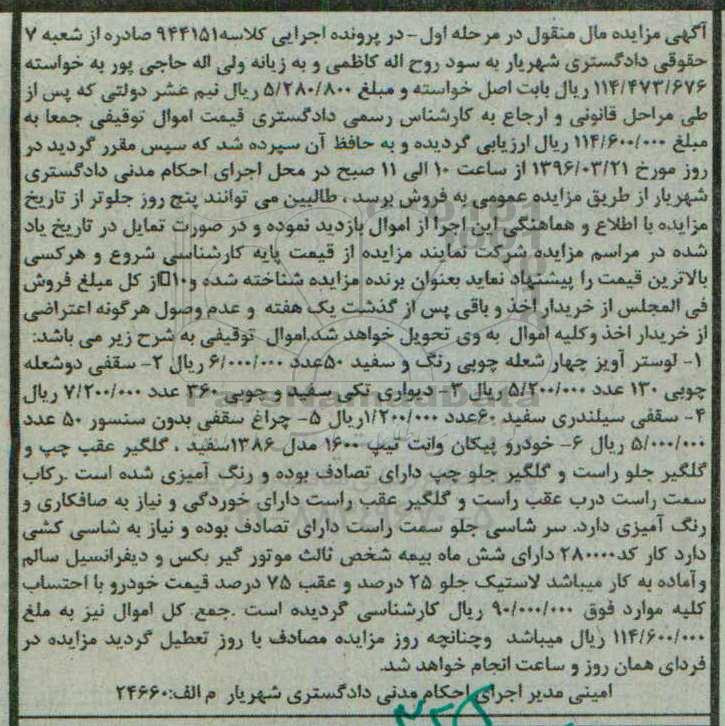 آگهی مزایده مال منقول در مرحله اول - در پرونده اجرایی کلاسه ۹۴۴۱۵۱ صادره از شعبه ۷
حقوقی دادگستری شهریار به سود روح اله کاظمی و به زیانه ولی اله حاجی پور به خواسته
۱۱۴/۴۷۳/۶۷۶ ریال بابت اصل خواسته و مبلغ ۵/۲۸۰/۸۰۰ ریال نیم عشر دولتی که پس از
طی مراحل قانونی و ارجاع به کارشناس رسمی دادگستری قیمت اموال توقیفی جمعا به
مبلغ ۱۱۴/۶۰۰/۰۰۰ ریال ارزیابی گردیده و به حافظ آن سپرده شد که سپس مقرر گردید در
روز مورخ ۱۳۹۶/۰۳/۲۱ از ساعت ۱۰ الی ۱۱ صبح در محل اجرای احکام مدنی دادگستری
شهریار از طریق مزایده عمومی به فروش برسد ، طالبین می توانند پنج روز جلوتر از تاریخ
مزایده با اطلاع و هماهنگی این اجرا از اموال بازدید نموده و در صورت تمایل در تاریخ یاد
شده در مراسم مزایده شرکت نمایند مزایده از قیمت پایه کارشناسی شروع و هرکسی
بالاترین قیمت را پیشنهاد نماید بعنوان برنده مزایده شناخته شده و۱۰□از کل مبلغ فروش
فی المجلس از خریدار اخذ و باقی پس از گذشت یک هفته و عدم وصول هرگونه اعتراضی
از خریدار اخذ وکلیه اموال به وی تحویل خواهد شد.اموال توقیفی به شرح زیر می باشد:
۱- لوستر آویز چهار شعله چوبی رنگ و سفید ۵۰عدد ۶/۰۰۰/۰۰۰ ریال ۲- سقفی دوشعله
چوبی ۱۳۰ عدد ۵/۲۰۰/۰۰۰ ریال ۳- دیواری تکی سفید و چوبی ۳۶۰ عدد ۷/۲۰۰/۰۰۰ ریال
۴- سقفی سیلندری سفید ۶۰عدد ۱/۲۰۰/۰۰۰ریال ۵- چراغ سقفی بدون سنسور ۵۰ عدد
۵/۰۰۰/۰۰۰ ریال ۶- خودرو پیکان وانت تیپ ۱۶۰۰ مدل ۱۳۸۶سفید ، گلگیر عقب چپ و
گلگیر جلو راست و گلگیر جلو چپ دارای تصادف بوده و رنگ آمیزی شده است .رکاب
سمت راست درب عقب راست و گلگیر عقب راست دارای خوردگی و نیاز به صافکاری و
رنگ آمیزی دارد. سر شاسی جلو سمت راست دارای تصادف بوده و نیاز به شاسی کشی
دارد کار کد۲۸۰۰۰۰ دارای شش ماه بیمه شخص ثالث موتور گیر بکس و دیفرانسیل سالم
وآماده به کار میباشد لاستیک جلو ۲۵ درصد و عقب ۷۵ درصد قیمت خودرو با احتساب
کلیه موارد فوق ۹۰/۰۰۰/۰۰۰ ریال کارشناسی گردیده است .جمع کل اموال نیز به ملغ
۱۱۴/۶۰۰/۰۰۰ ریال میباشد وچنانچه روز مزایده مصادف با روز تعطیل گردید مزایده در
فردای همان روز و ساعت انجام خواهد شد.
امینی مدیر اجرای احکام مدنی دادگستری شهریار م الف:۲۴۶۶۰